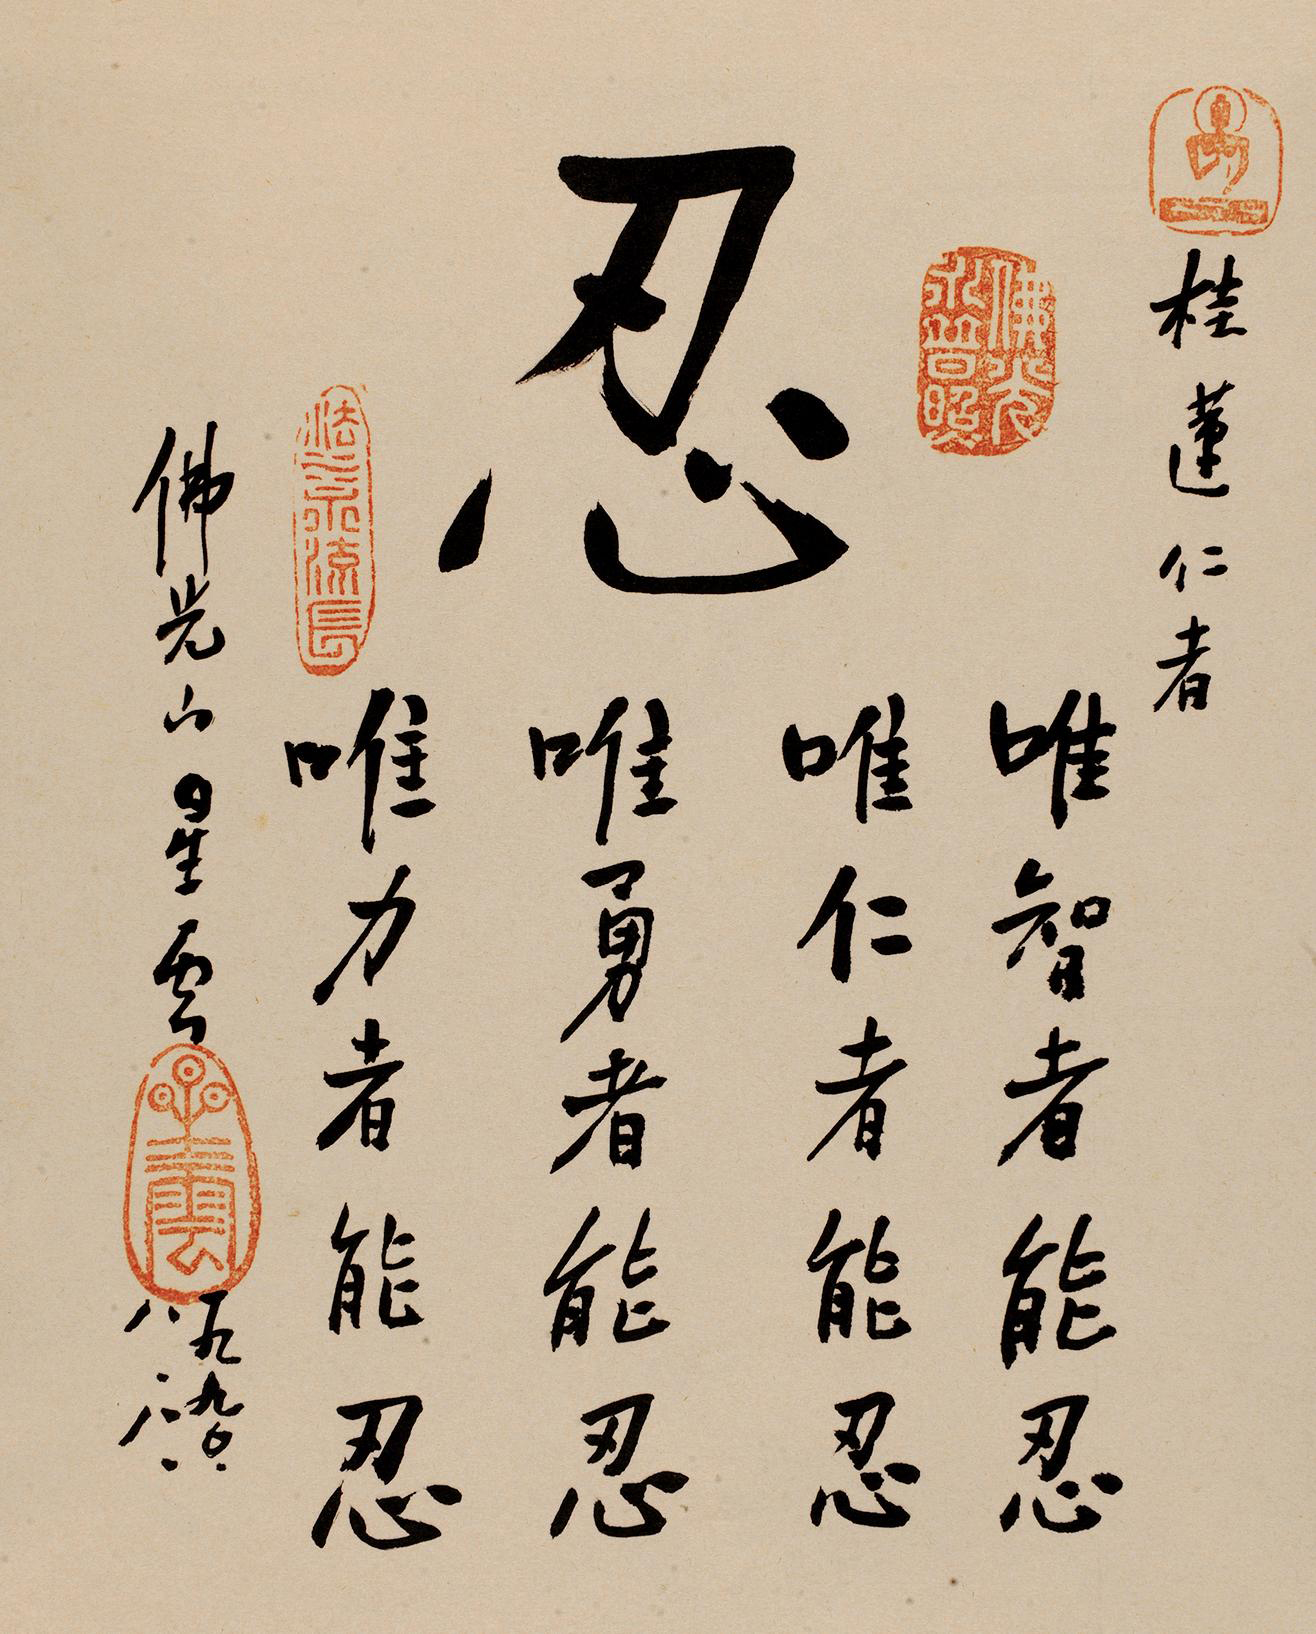 桂蓮仁者
佛光永普照
忍
唯智者能忍
唯仁者能忍
唯勇者能忍
唯力者能忍
法水永流長
佛光山星雲
星雲
一九九〇